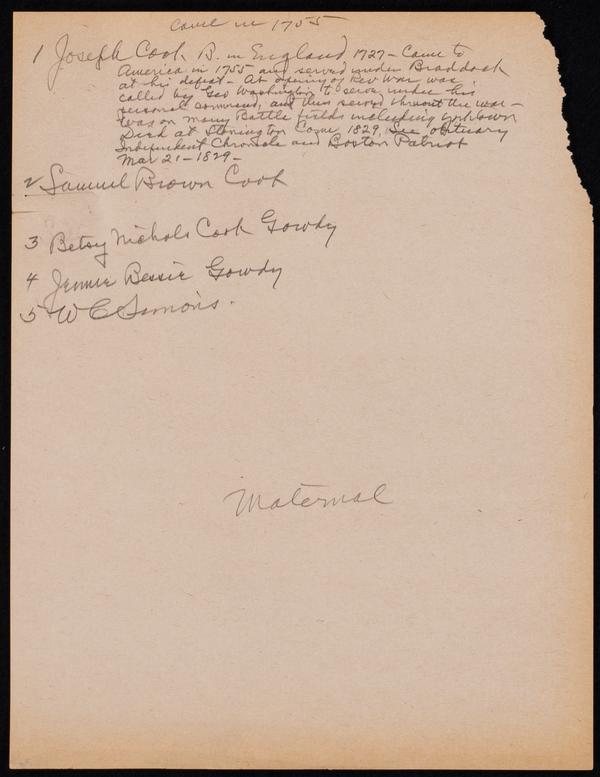 came in 1755
1 Joseph Cook B. in England 1727 - Came to
America in 1755 and served under Braddock
at his defeat - At opening of Rev War was
called by Geo Washington to serve under his
personal command, and thus served throughout the war -
Was on many Battle fields including Yorktown
Died at Stonington Conn 1829, See obituary
Independent Chronicle and Boston Patriot
Mar 21 - 1829 -
2 Samuel Brown Cook
3 Betsy Nichols Cook Gowdy
4 Jennie Bessie Gowdy
5 W C Simons.
Maternal